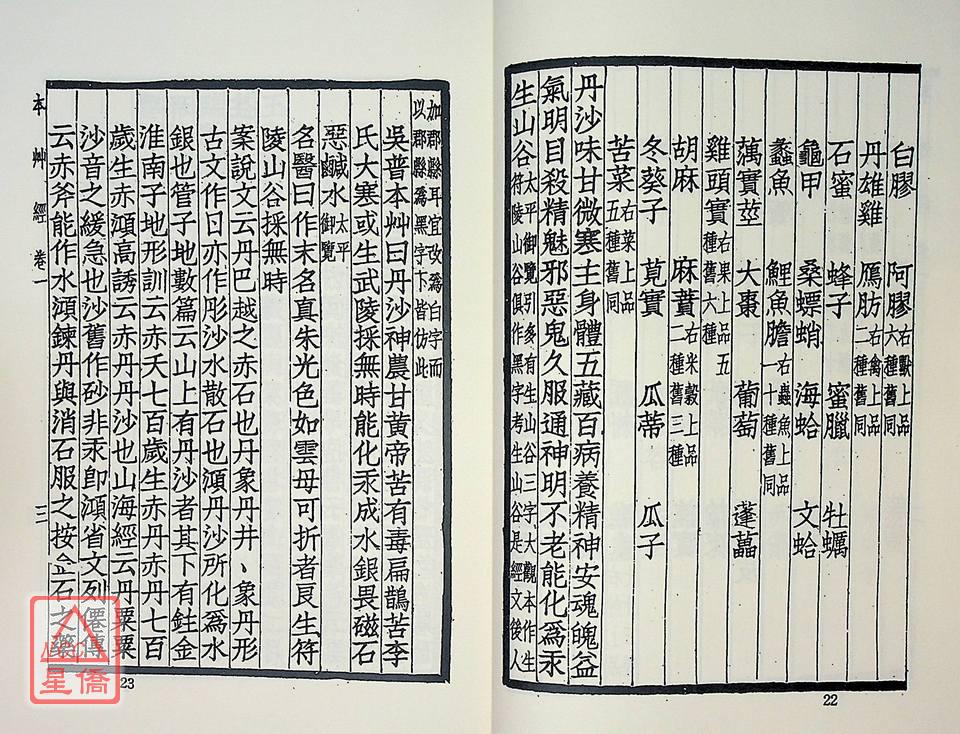 白膠　阿膠右獸上品六種舊同
丹雄雞　鴈肪右禽上品二種舊同
石蜜　蜂子　蜜臘　牡蠣
龜甲　桑螵蛸　海蛤　文蛤
蠡魚　鯉魚膽右蟲魚上品一十種舊同
藕實莖　大棗　葡萄　蓬蘽
雞頭實右果上品五種舊六種
胡麻　麻蕡右米穀上品二種舊三種
冬葵子　莧實　瓜蒂　瓜子
苦菜右菜上品五種舊同
丹沙味甘微寒主身體五藏百病養精神安魂魄益
氣明目殺精魅邪惡鬼久服通神明不老能化爲汞
生山谷太平御覽引多有生山谷三字大觀本作生符陵山谷俱作黑字考生山谷是經文後人
22
加郡縣耳宜改爲白字而以郡縣爲黑字下皆仿此
吳普本艸曰丹沙神農甘黄帝苦有毒扁鵲苦李
氏大寒或生武陵採無時能化汞成水銀畏磁石
惡鹹水太平御覽
名醫曰作末名真朱光色如雲母可折者良生符
陵山谷採無時
案說文云丹巴越之赤石也丹象丹井、象丹形
古文作日亦作彤沙水散石也澒丹沙所化爲水
銀也管子地數篇云山上有丹沙者其下有鉒金
淮南子地形訓云赤夭七百歲生赤丹赤丹七百
歲生赤澒高誘云赤丹丹沙也山海經云丹粟粟
沙音之緩急也沙舊作砂非汞卽澒省文列僊傳
云赤斧能作水澒鍊丹與消石服之按金石之藥
本艸經　卷一　三
23
星僑